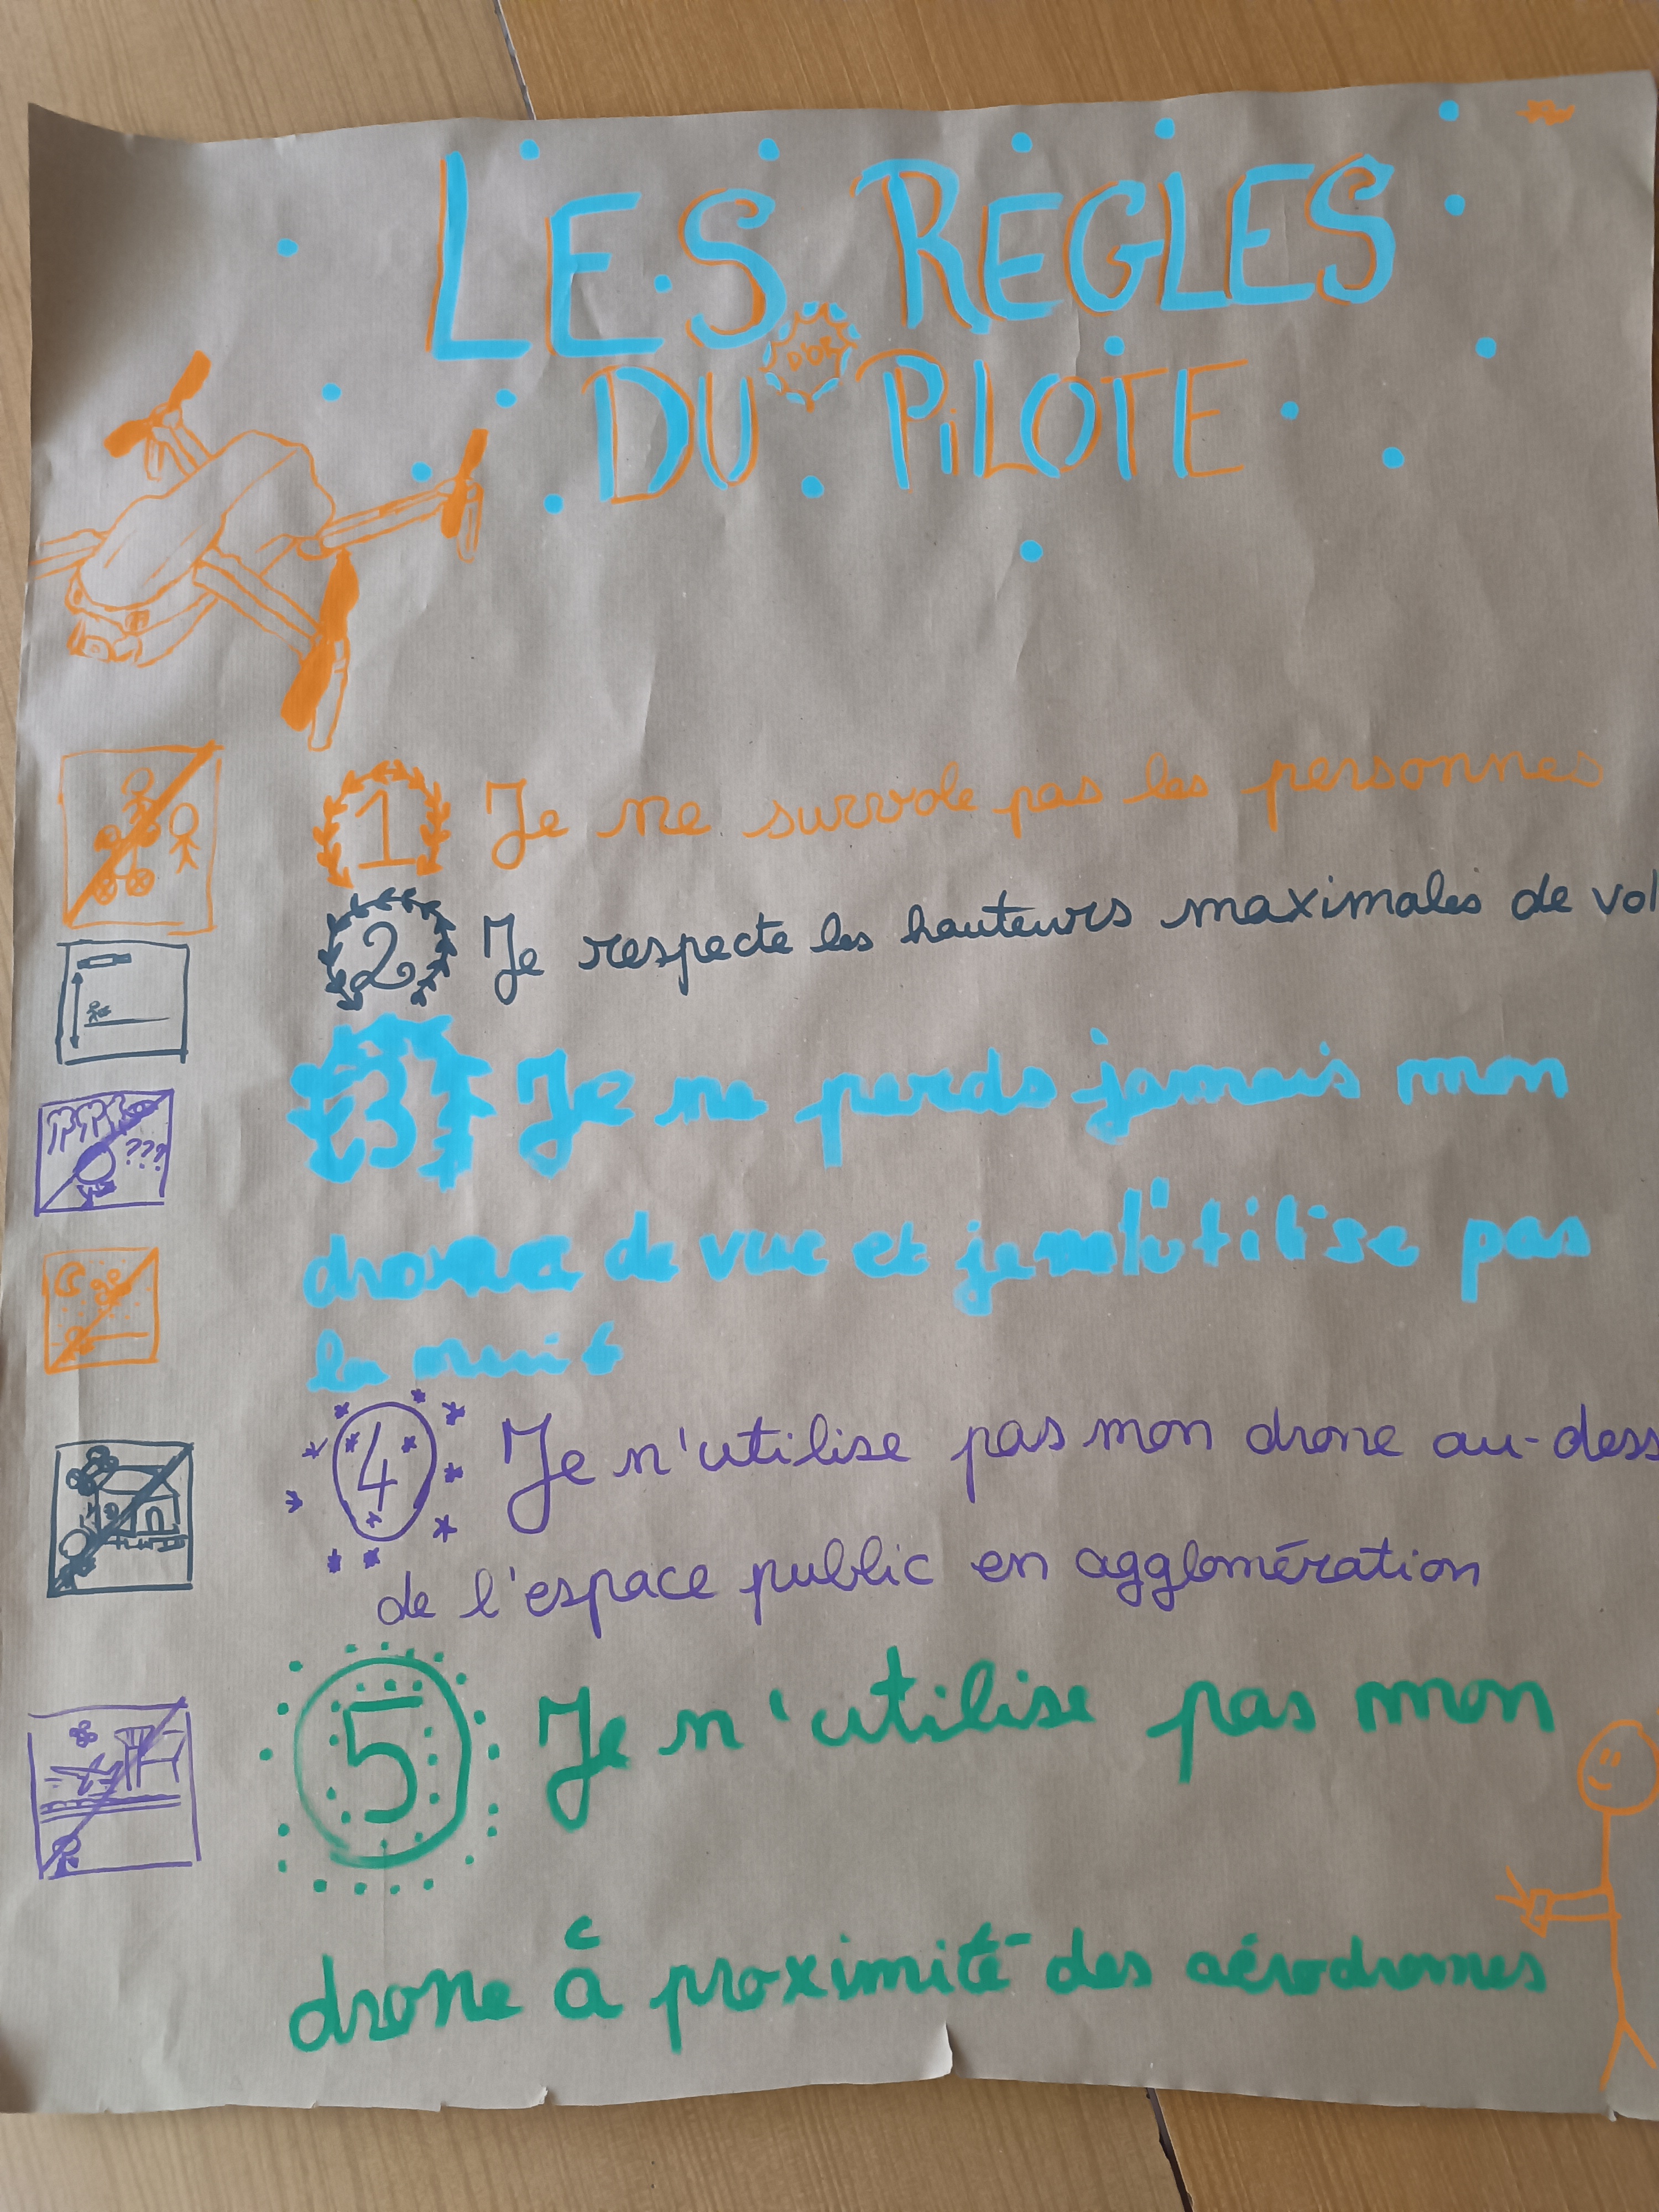 LES REGLES
DU PiLOTE
1 Je ne survole pas les personnes
2 Je respecte les hauteurs maximales de vol
3 Je ne perds jamais mon
drone de vue et je n'utilise pas
la nuit
???
4 Je n'utilise pas mon drone au-dess
de l'espace public en agglomération
5 Je n'utilise pas mon
drone à proximité des aérodromes